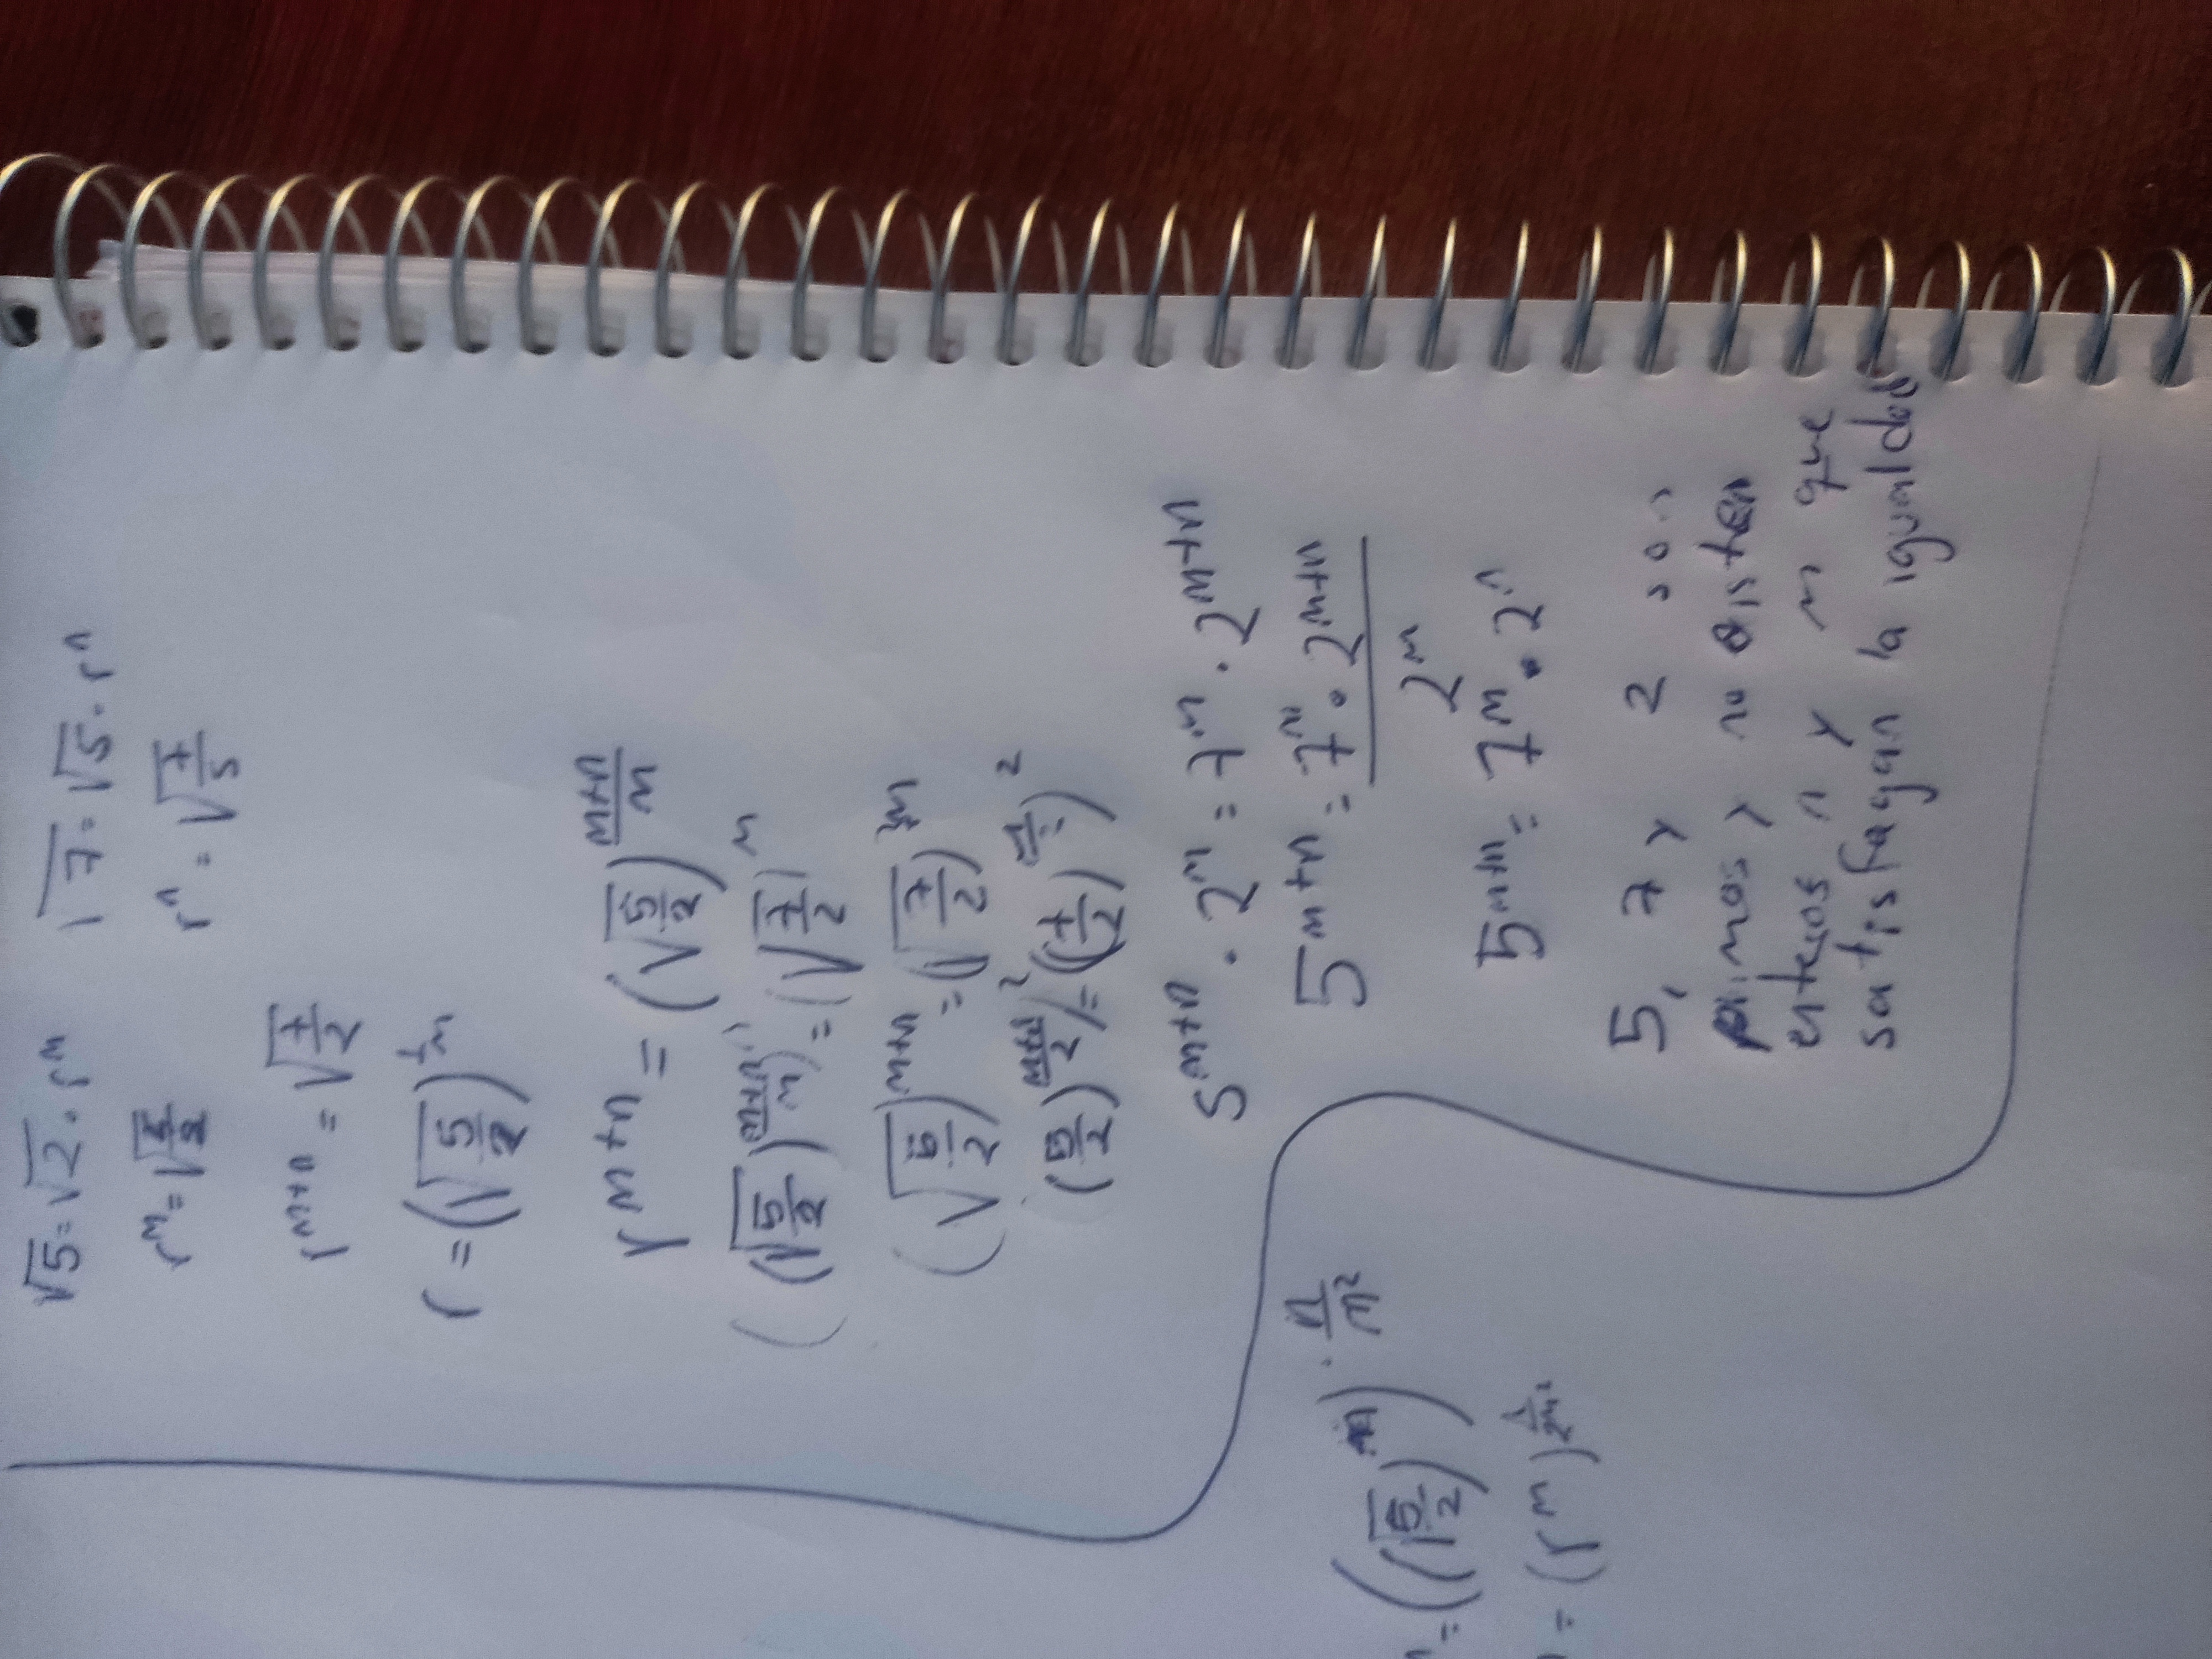 √5 = √2 · r^m    √7 = √5 · r^n
r^m = √(5/2)    r^n = √(7/5)
r^(m+n) = √(7/2)
r = (√(5/2))^(1/m)
r^(m+n) = (√(5/2))^((m+n)/m)
((√(5/2))^((m+n)/m)) = (√(7/2))^m
(√(5/2))^(m+n) = (√(7/2))^m
((5/2)^((m+n)/2))^2 = ((7/2)^(m/2))^2
5^(m+n) · 2^m = 7^m · 2^(m+n)
5^(m+n) = (7^m · 2^(m+n)) / 2^m
5^(m+n) = 7^m · 2^n
5, 7 y 2 son
primos y no existen
enteros n y m que
satisfagan la igualdad
= ((√(5/2))^m) · n/m²
= (r^m)